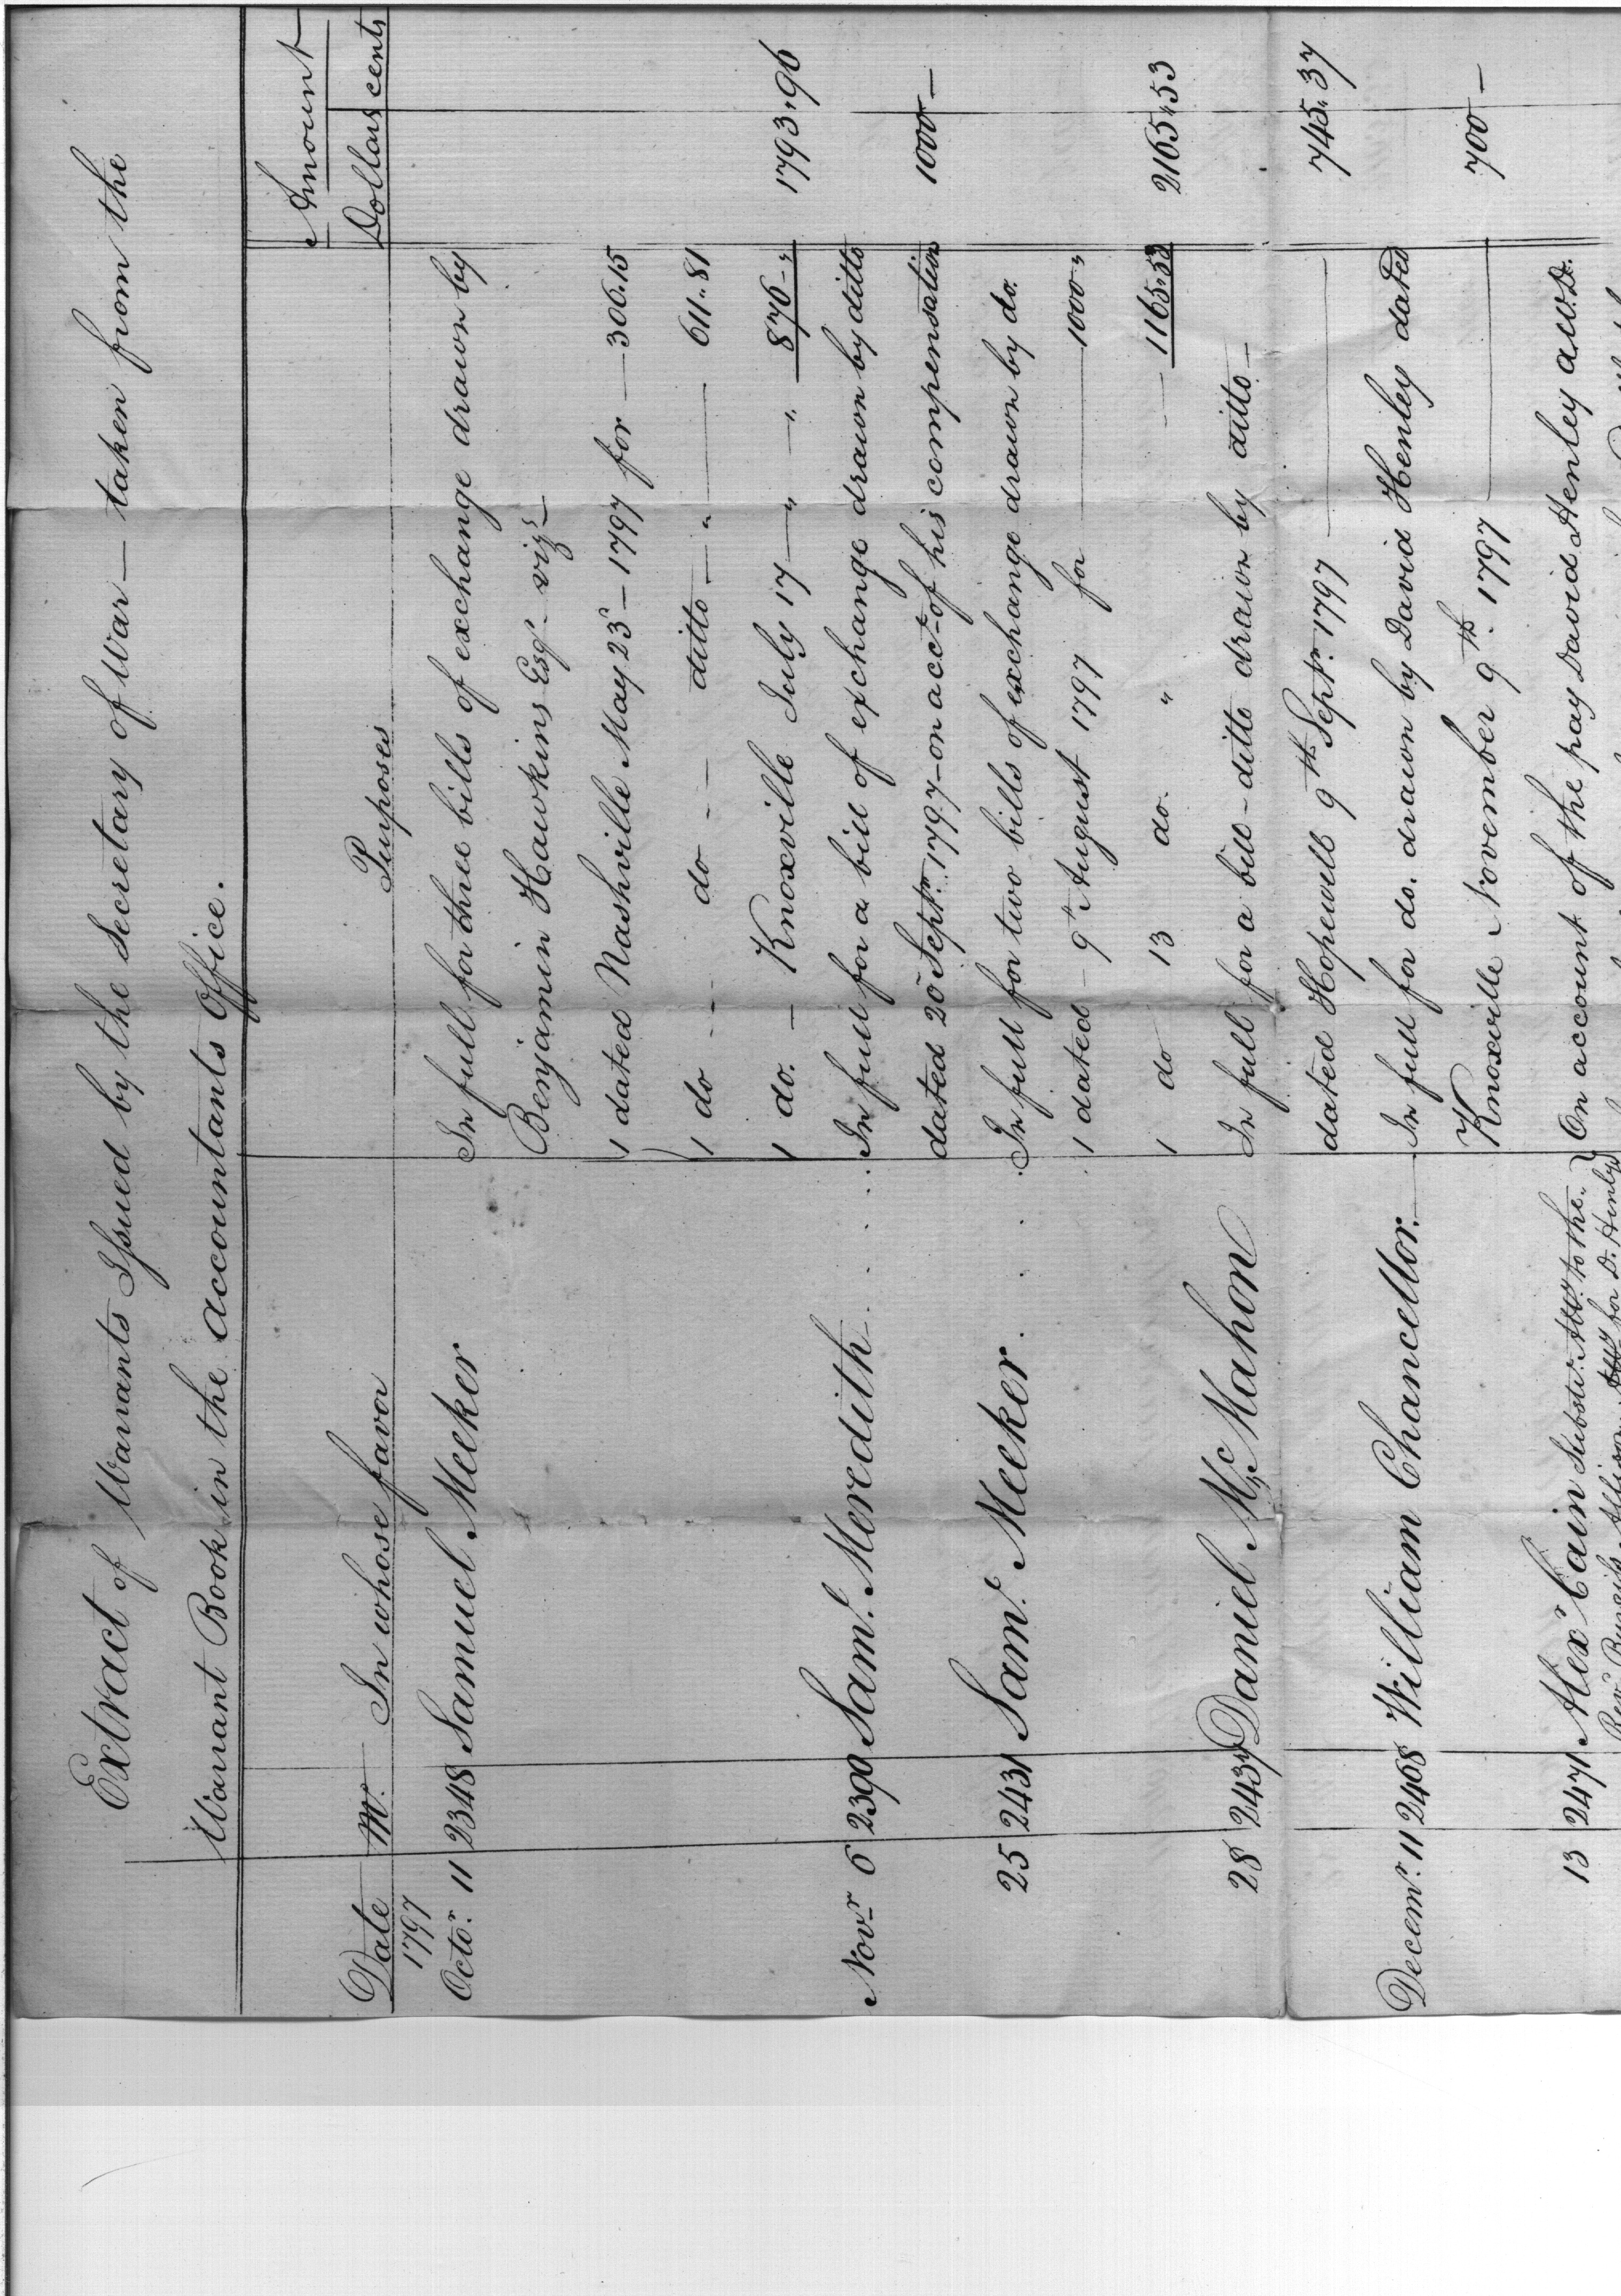 Extract of Warrants Issued by the Secretary of War — taken from the
Warrant Book in the Accountants Office.
Amount
Date No. In whose favor Purposes Dollars cents
1797
Octor. 11 2348 Samuel Meeker In full for three bills of exchange drawn by
Benjamin Hawkins Esqr. vizt.
1 dated Nashville May 23d — 1797 for — 306.15
1 do -- do -- ditto — " — 611.81
1 do. — Knoxville July 17 — " — " 876 — " 1793.96
Novr. 6 2390 Saml. Meredith In full for a bill of exchange drawn by ditto
dated 20 Septr. 1797 — on acct. of his compensation 1000 —
25 2431 Saml. Meeker In full for two bills of exchange drawn by do.
1 dated — 9th August 1797 for — 1000 "
1 do 13 do. " — 1165.53 2165.53
28 2437 Daniel McMahon In full for a bill — ditto drawn by ditto —
dated Hopewell 9th Septr. 1797 — 745.37
Decemr. 11 2468 William Chancellor. In full for do. drawn by David Henley dated
Knoxville November 9th. 1797 — 700 —
13 2471 Alexr. Cain Substi: to the On account of the pay David Henley A.W.D.
for D. Henley